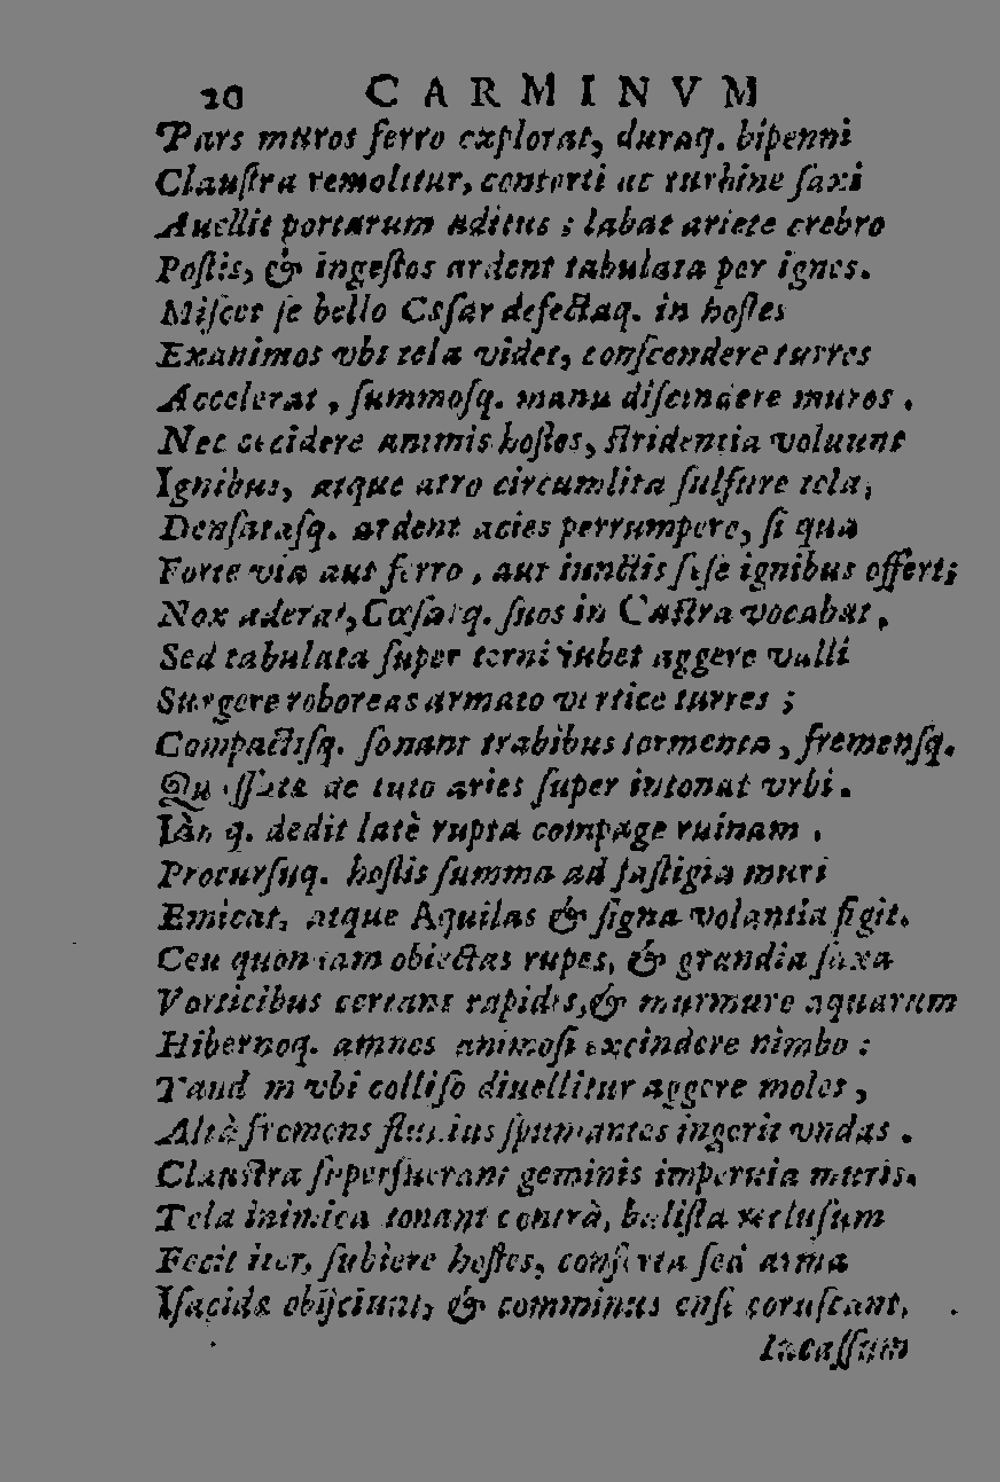 20 CARMINVM
Pars muros ferro explorat, duraq. bipenni
Clauſtra remolitur, contorti ac turbine ſaxi
Auellit portarum aditus ; labat ariete crebro
Poſtis, & ingeſtos ardent tabulata per ignes.
Miſcet ſe bello Cæſar defectaq. in hoſtes
Exanimos vbi tela videt, conſcendere turres
Accelerat , ſummoſq. manu diſcindere muros .
Nec cecidere animis hoſtes, ſtridentia voluunt
Ignibus, atque atro circumlita ſulfure tela,
Denſataſq. ardent acies perrumpere, ſi qua
Forte via aut ferro , aut iunctis ſeſe ignibus offert;
Nox aderat, Cæſarq. ſuos in Caſtra vocabat ,
Sed tabulata ſuper terni iubet aggere valli
Surgere roboreas armato vertice turres ;
Compactiſq. ſonant trabibus tormenta , fremenſq.
Quaſſata de tuto aries ſuper intonat vrbi .
Iàn q. dedit latè rupta compage ruinam .
Procurſuq. hoſtis ſumma ad faſtigia muri
Emicat, atque Aquilas & ſigna volantia figit.
Ceu quoniam obiectas rupes, & grandia ſaxa
Vorticibus certant rapidis, & murmure aquarum
Hibernoq. amnes animoſi excindere nimbo :
Tand m vbi colliſo diuellitur aggere moles ,
Altà fremens fluuius ſpumantes ingerit vndas .
Clauſtra ſuperfuerant geminis imperuia muris.
Tela inimica tonant contrà, baliſta recluſum
Fecit iter, ſubiere hoſtes, conſerta ſed arma
Iſacidæ obijciunt, & comminus enſe coruſcant,
Incaſſum